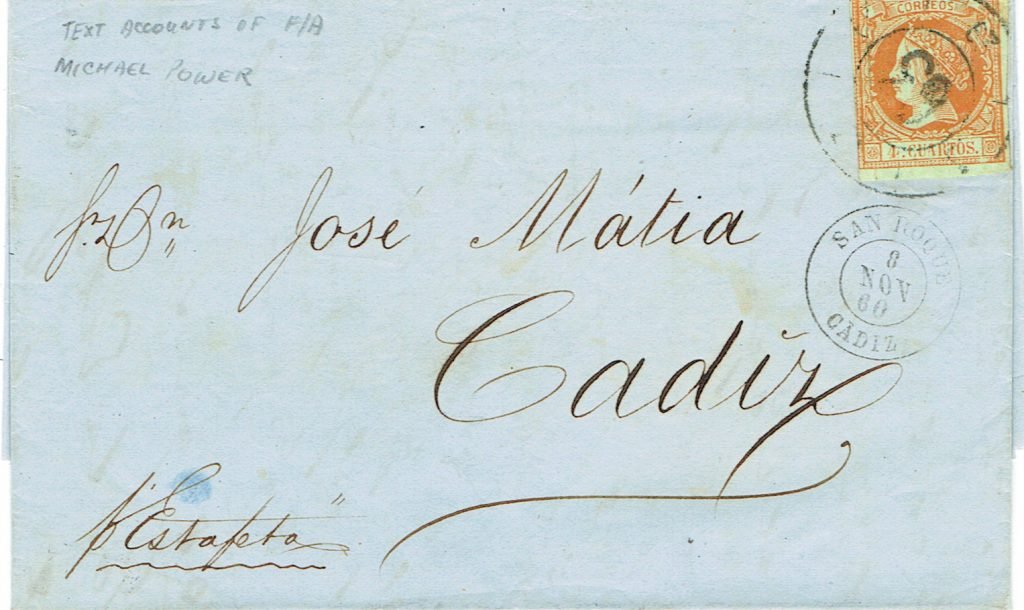 TEXT ACCOUNTS OF F/A
MICHAEL POWER
CORREOS
4 Cs CUARTOS.
Sr Dn José Mátia
SAN ROQUE
8
NOV
60
CADIZ
Cadiz
p "Estafeta"